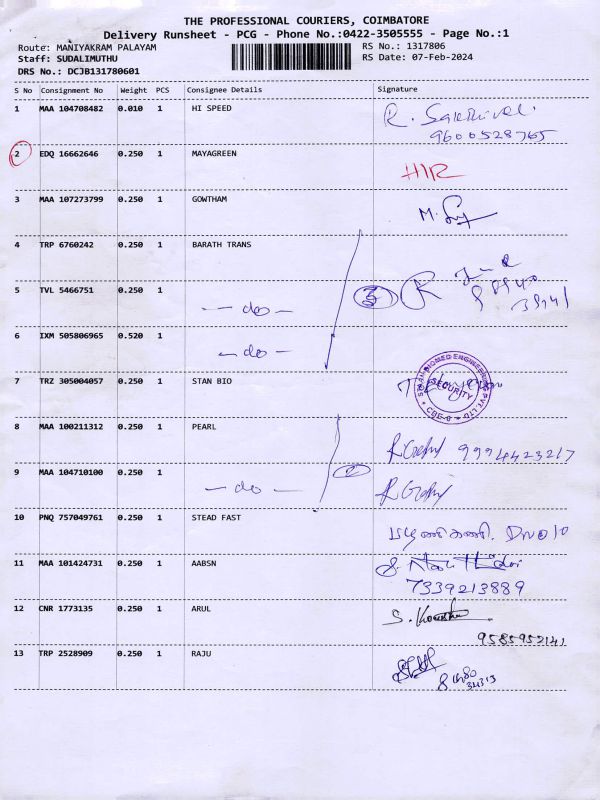 THE PROFESSIONAL COURIERS, COIMBATORE
Delivery Runsheet - PCG - Phone No.:0422-3505555 - Page No.:1
Route: MANIYAKRAM PALAYAM RS No.: 1317806
Staff: SUDALIMUTHU RS Date: 07-Feb-2024
DRS No.: DCJB131780601
S No Consignment No Weight PCS Consignee Details Signature
1 MAA 104708482 0.010 1 HI SPEED
9600528765
2 EDQ 16662646 0.250 1 MAYAGREEN
3 MAA 107273799 0.250 1 GOWTHAM
4 TRP 6760242 0.250 1 BARATH TRANS
5 TVL 5466751 0.250 1 — do — 3
6 IXM 505806965 0.520 1 — do —
7 TRZ 305004057 0.250 1 STAN BIO
SECURITY
CBE-6
8 MAA 100211312 0.250 1 PEARL
9994423217
9 MAA 104710100 0.250 1 — do — 2
10 PNQ 757049761 0.250 1 STEAD FAST
11 MAA 101424731 0.250 1 AABSN
7339213889
12 CNR 1773135 0.250 1 ARUL
9585952141
13 TRP 2528909 0.250 1 RAJU